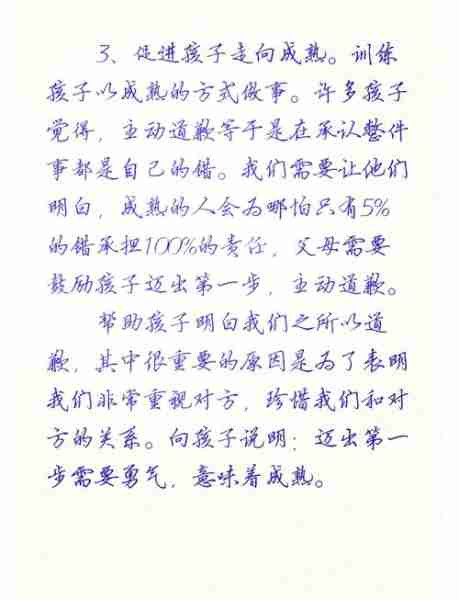 3、促进孩子走向成熟。训练
孩子以成熟的方式做事。许多孩子
觉得，主动道歉等于是在承认整件
事都是自己的错。我们需要让他们
明白，成熟的人会为哪怕只有5%
的错承担100%的责任，父母需要
鼓励孩子迈出第一步，主动道歉。
帮助孩子明白我们之所以道
歉，其中很重要的原因是为了表明
我们非常重视对方，珍惜我们和对
方的关系。向孩子说明；迈出第一
步需要勇气，意味着成熟。